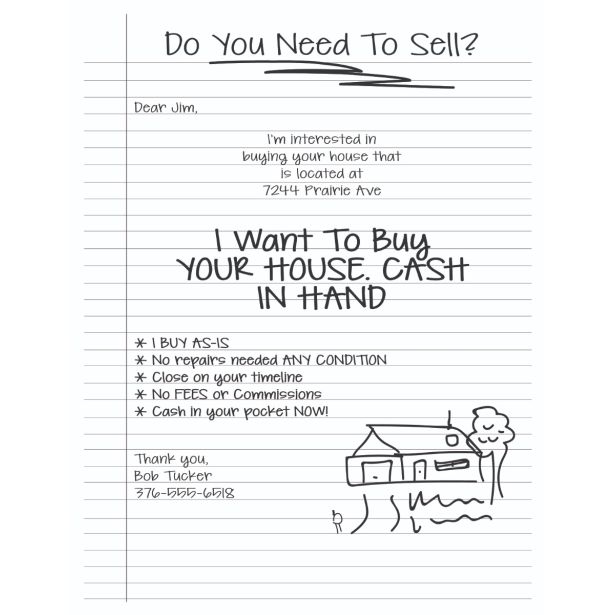 Do You Need To Sell?
Dear Jim,
I'm interested in
buying your house that
is located at
7244 Prairie Ave
I Want To Buy
YOUR HOUSE. CASH
IN HAND
* I BUY AS-IS
* No repairs needed ANY CONDITION
* Close on your timeline
* No FEES or Commissions
* Cash in your pocket NOW!
Thank you,
Bob Tucker
376-555-6518